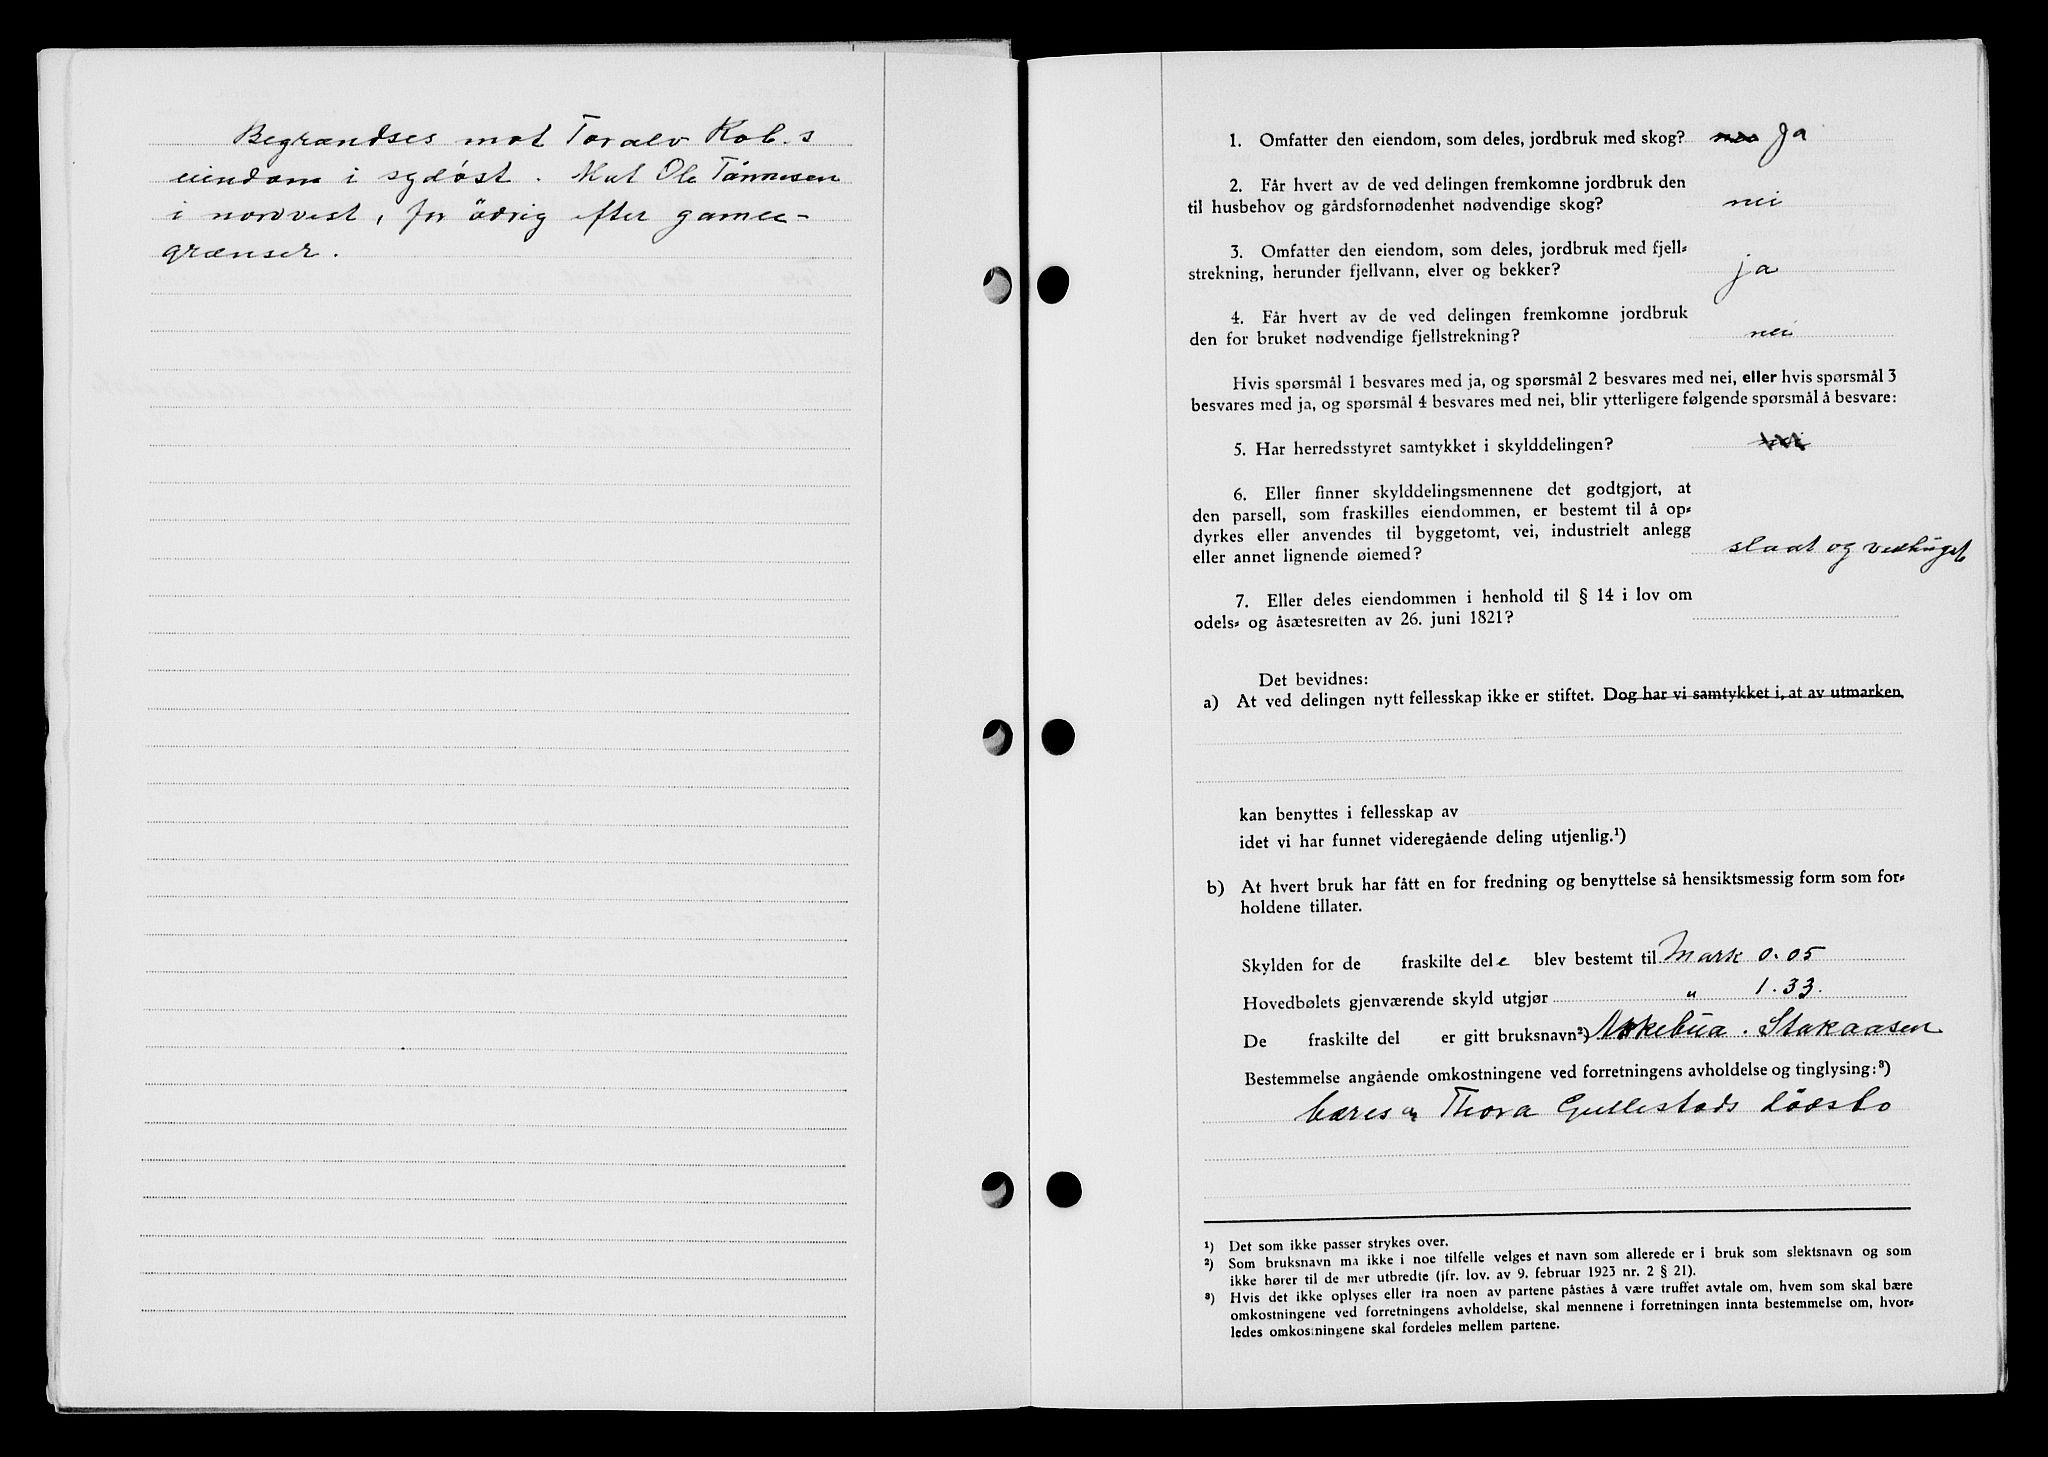 Begrændses mot Toralv Rob.s
eiendom i sydöst. Mot Ole Tönnesen
i nordvest, for övrig efter gamle-
grænser.
1. Omfatter den eiendom, som deles, jordbruk med skog? Ja
2. Får hvert av de ved delingen fremkomne jordbruk den
til husbehov og gårdsfornødenhet nødvendige skog? nei
3. Omfatter den eiendom, som deles, jordbruk med fjell-
strekning, herunder fjellvann, elver og bekker? ja
4. Får hvert av de ved delingen fremkomne jordbruk
den for bruket nødvendige fjellstrekning? nei
Hvis spørsmål 1 besvares med ja, og spørsmål 2 besvares med nei, eller hvis spørsmål 3
besvares med ja, og spørsmål 4 besvares med nei, blir ytterligere følgende spørsmål å besvare:
5. Har herredsstyret samtykket i skylddelingen?
6. Eller finner skylddelingsmennene det godtgjort, at
den parsell, som fraskilles eiendommen, er bestemt til å op-
dyrkes eller anvendes til byggetomt, vei, industrielt anlegg
eller annet lignende øiemed? slaat og vedhugst
7. Eller deles eiendommen i henhold til § 14 i lov om
odels- og åsætesretten av 26. juni 1821?
Det bevidnes:
a) At ved delingen nytt fellesskap ikke er stiftet. Dog har vi samtykket i, at av utmarken
kan benyttes i fellesskap av
idet vi har funnet videregående deling utjenlig.¹)
b) At hvert bruk har fått en for fredning og benyttelse så hensiktsmessig form som for-
holdene tillater.
Skylden for de fraskilte dele blev bestemt til Mark 0.05
Hovedbølets gjenværende skyld utgjør " 1.33.
De fraskilte del er gitt bruksnavn²) Stakaasen
Bestemmelse angående omkostningene ved forretningens avholdelse og tinglysing:³)
bæres av Thora Gullestads dödsbo
¹) Det som ikke passer strykes over.
²) Som bruksnavn ma ikke i noe tilfelle velges et navn som allerede er i bruk som slektsnavn og som
ikke hører til de mer utbredte (jfr. lov. av 9. februar 1923 nr. 2 § 21).
³) Hvis det ikke oplyses eller fra noen av partene påståes å være truffet avtale om, hvem som skal bære
omkostningene ved forretningens avholdelse, skal mennene i forretningen innta bestemmelse om, hvor-
ledes omkostningene skal fordeles mellem partene.